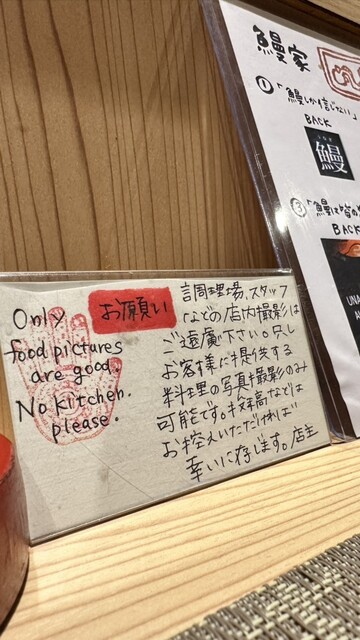 鰻家
① 「鰻しか信じない」
BACK
鰻
③
BACK
UNA
お願い
Only
food pictures
are good.
No kitchen.
please.
調理場、スタッフ
などの店内撮影は
ご遠慮下さい。只し
お客様に提供する
料理の写真撮影のみ
可能です。
お控えいただければ
幸いに存じます。店主